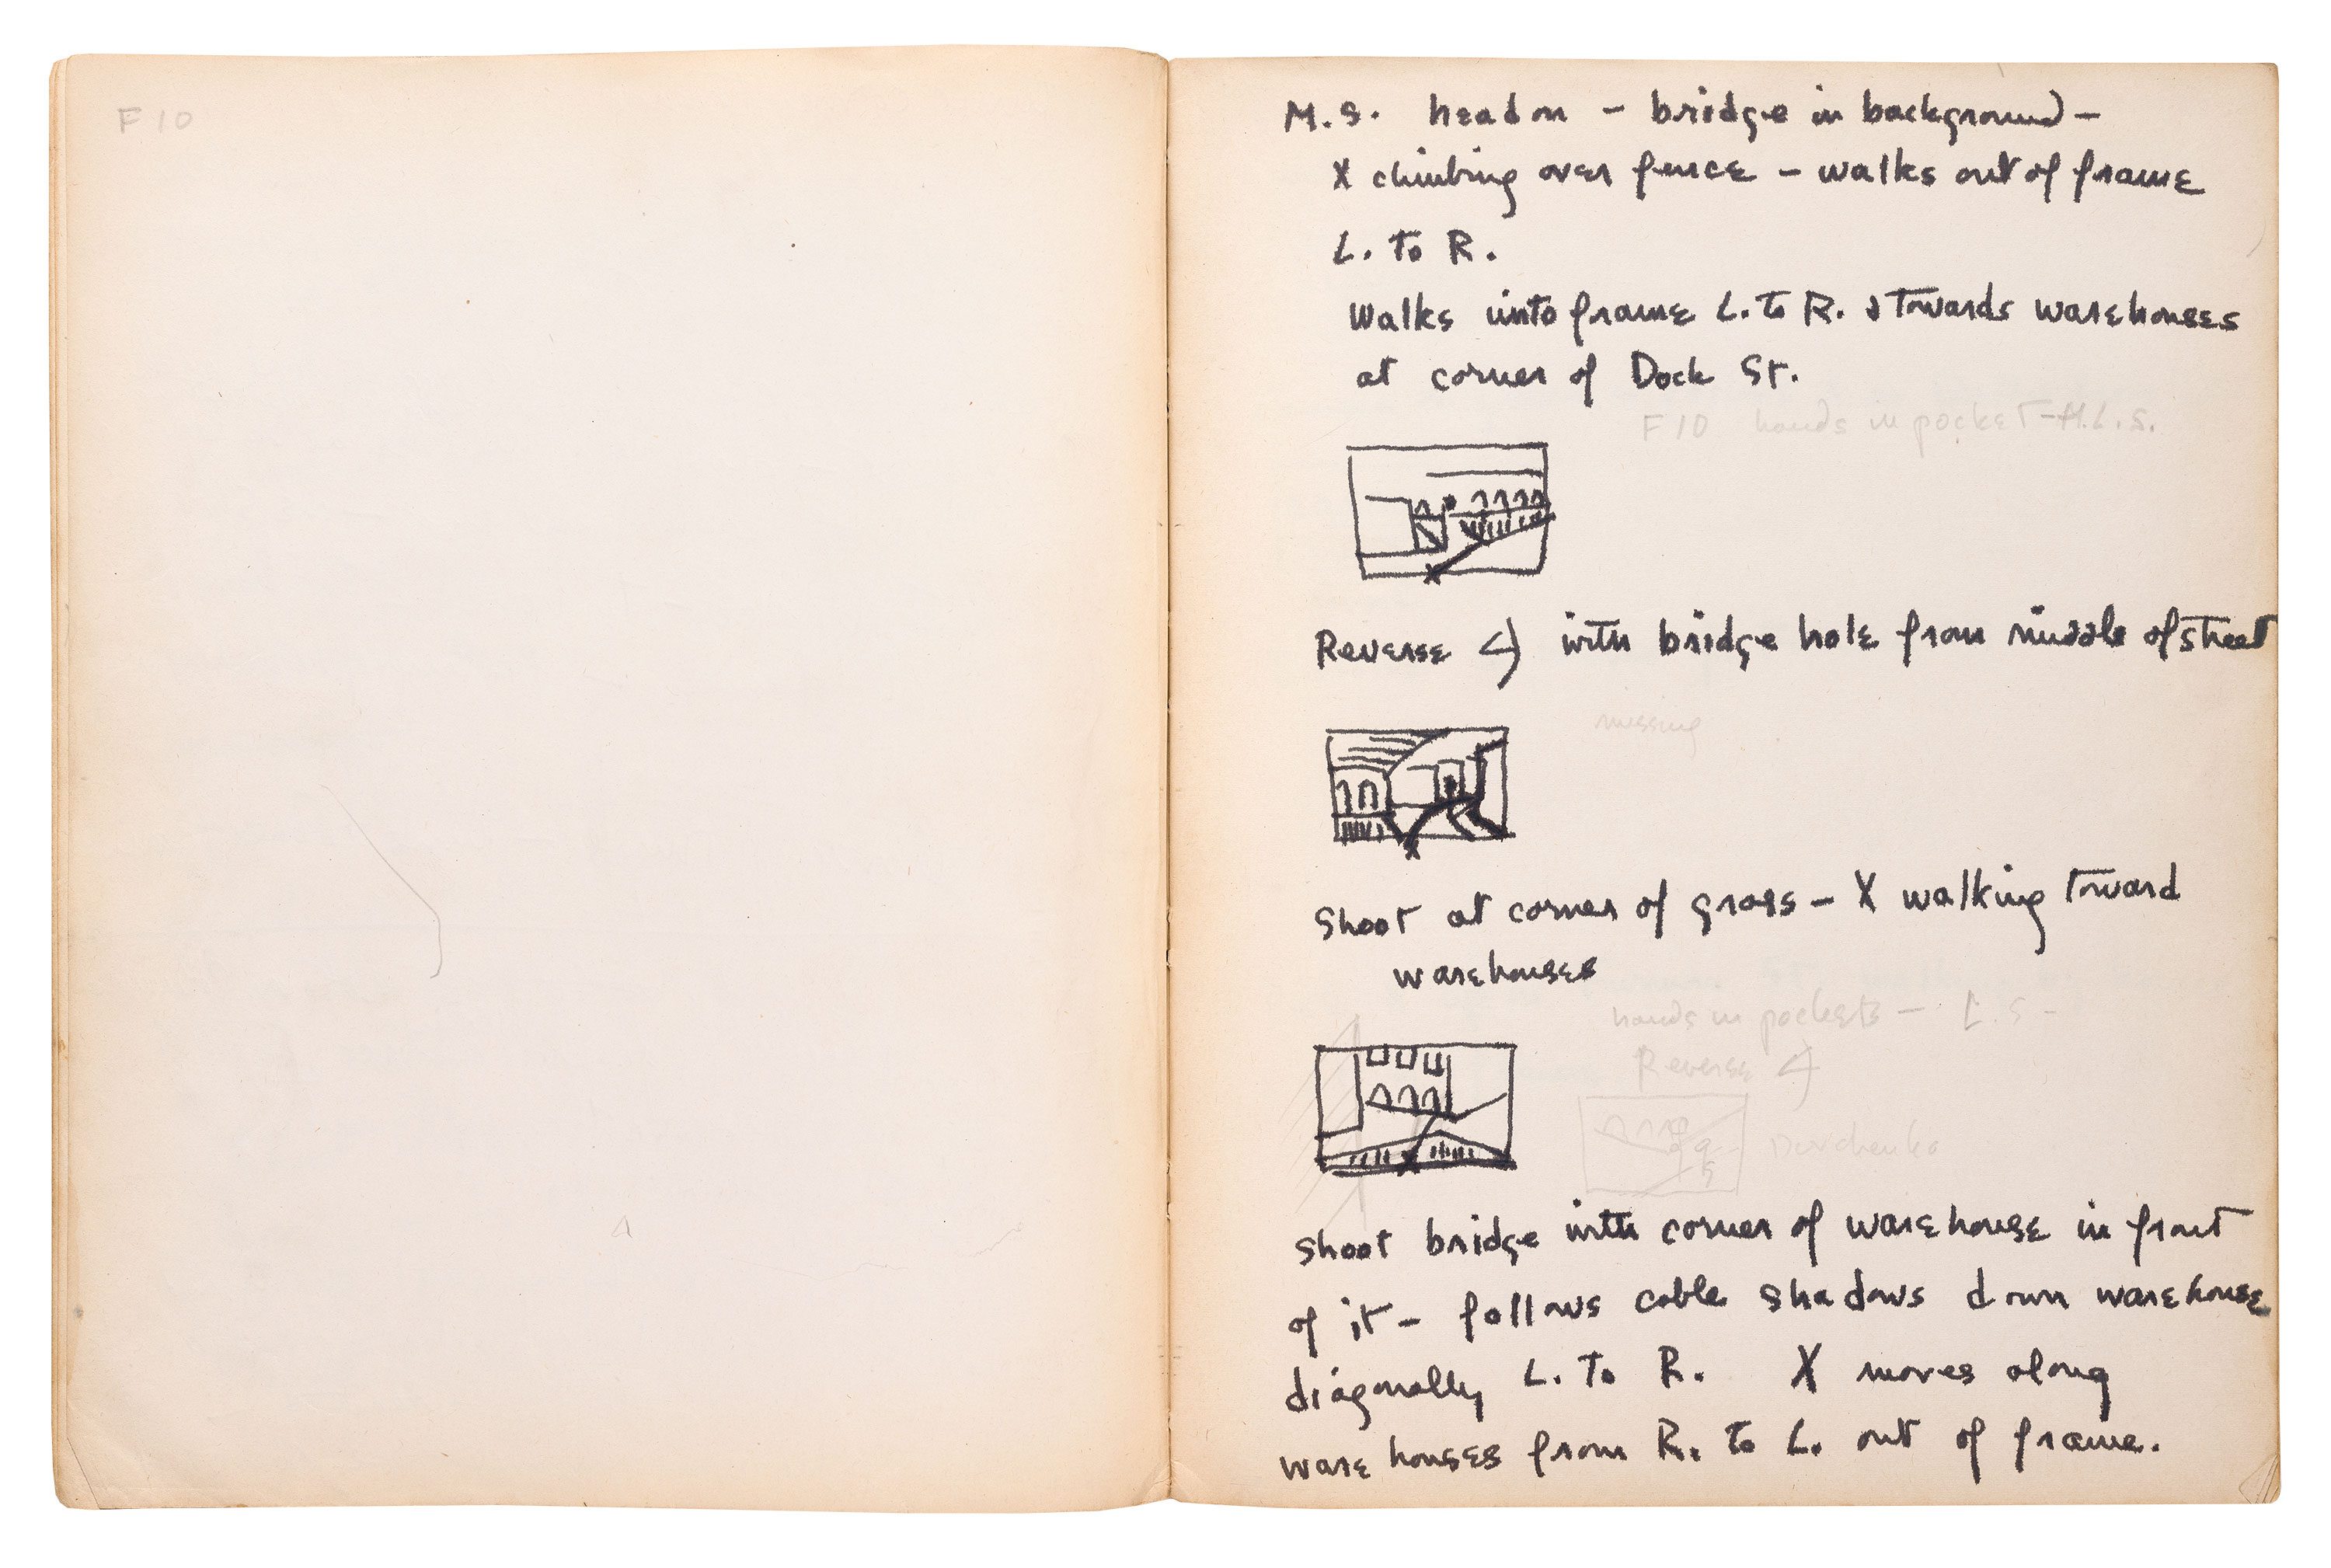 F 10
M.S. head on - bridge in background -
X climbing over fence - walks out of frame
L. to R.
Walks into frame L. to R. & towards warehouses
at corner of Dock St.
F 10 hands in pocket - M.L.S.
Reverse with bridge hole from middle of street
missing
Shoot at corner of grass - X walking toward
warehouses
hands in pockets - L.S -
Reverse
Shoot bridge with corner of warehouse in front
of it - follows cable shadows down warehouse
diagonally L. to R. X moves along
ware houses from R. to L. out of frame.